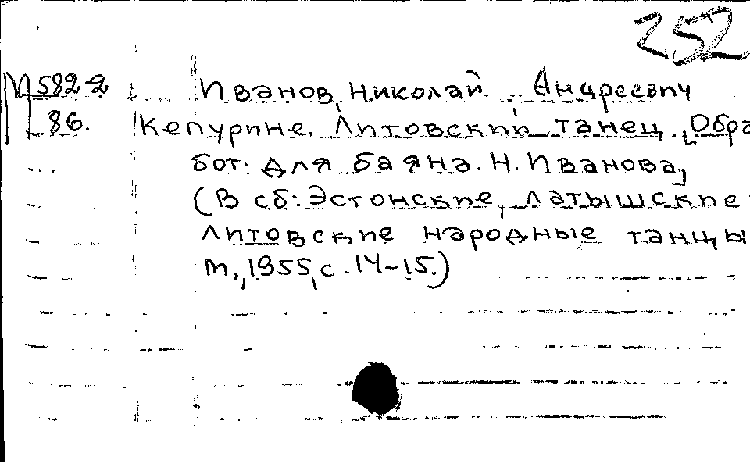 252
М 582-2 Иванов, Николай Андреевич
86. Кепурине. Литовский танец. [Обра
бот. для баяна. Н. Иванова]
(В сб: Эстонские, латышские
литовские народные танцы
М., 1955, с. 14-15.)